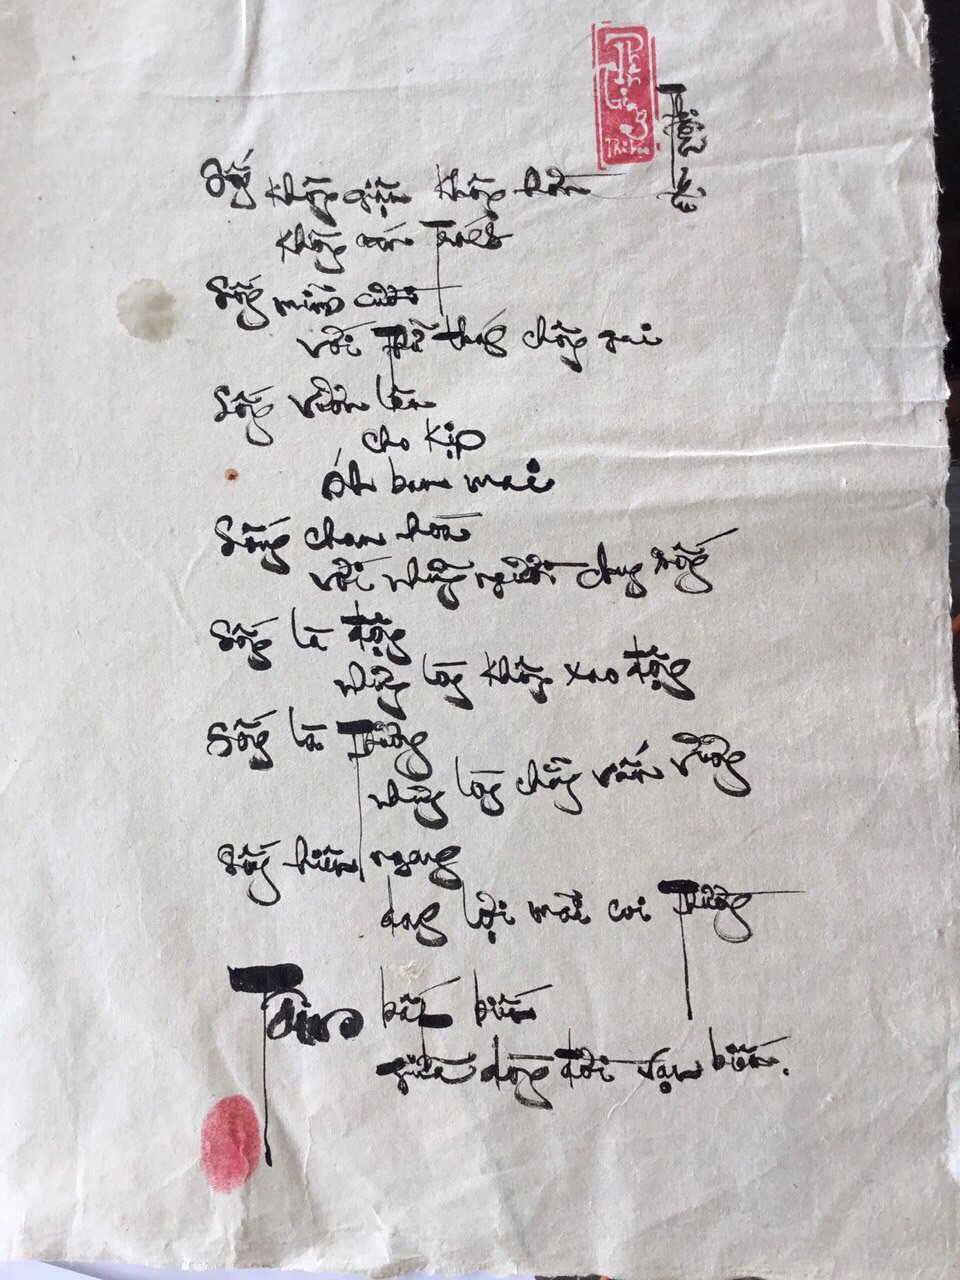 Sống không giận không hờn
không oán trách
Sống mỉm cười
với thử thách chông gai
Sống vươn lên
cho kịp
ánh ban mai
Sống chan hoà
với những người chung sống
Sống là động
nhưng lòng không xao động
Sống là thương
nhưng lòng chẳng vấn vương
Sống hiên ngang
danh lợi mãi coi thường
Tâm bất biến
giữa dòng đời vạn biến.